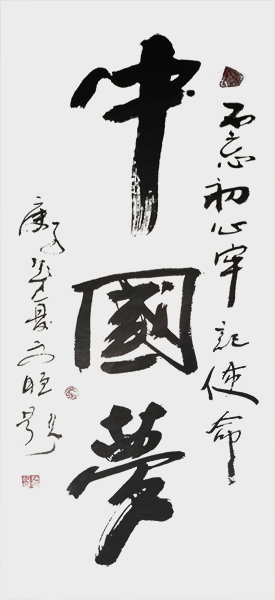 不忘初心牢記使命
中國夢
庚子年夏文